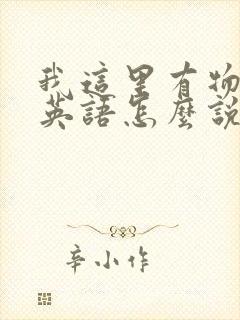 我這里有物
英語怎麼說
辛小作